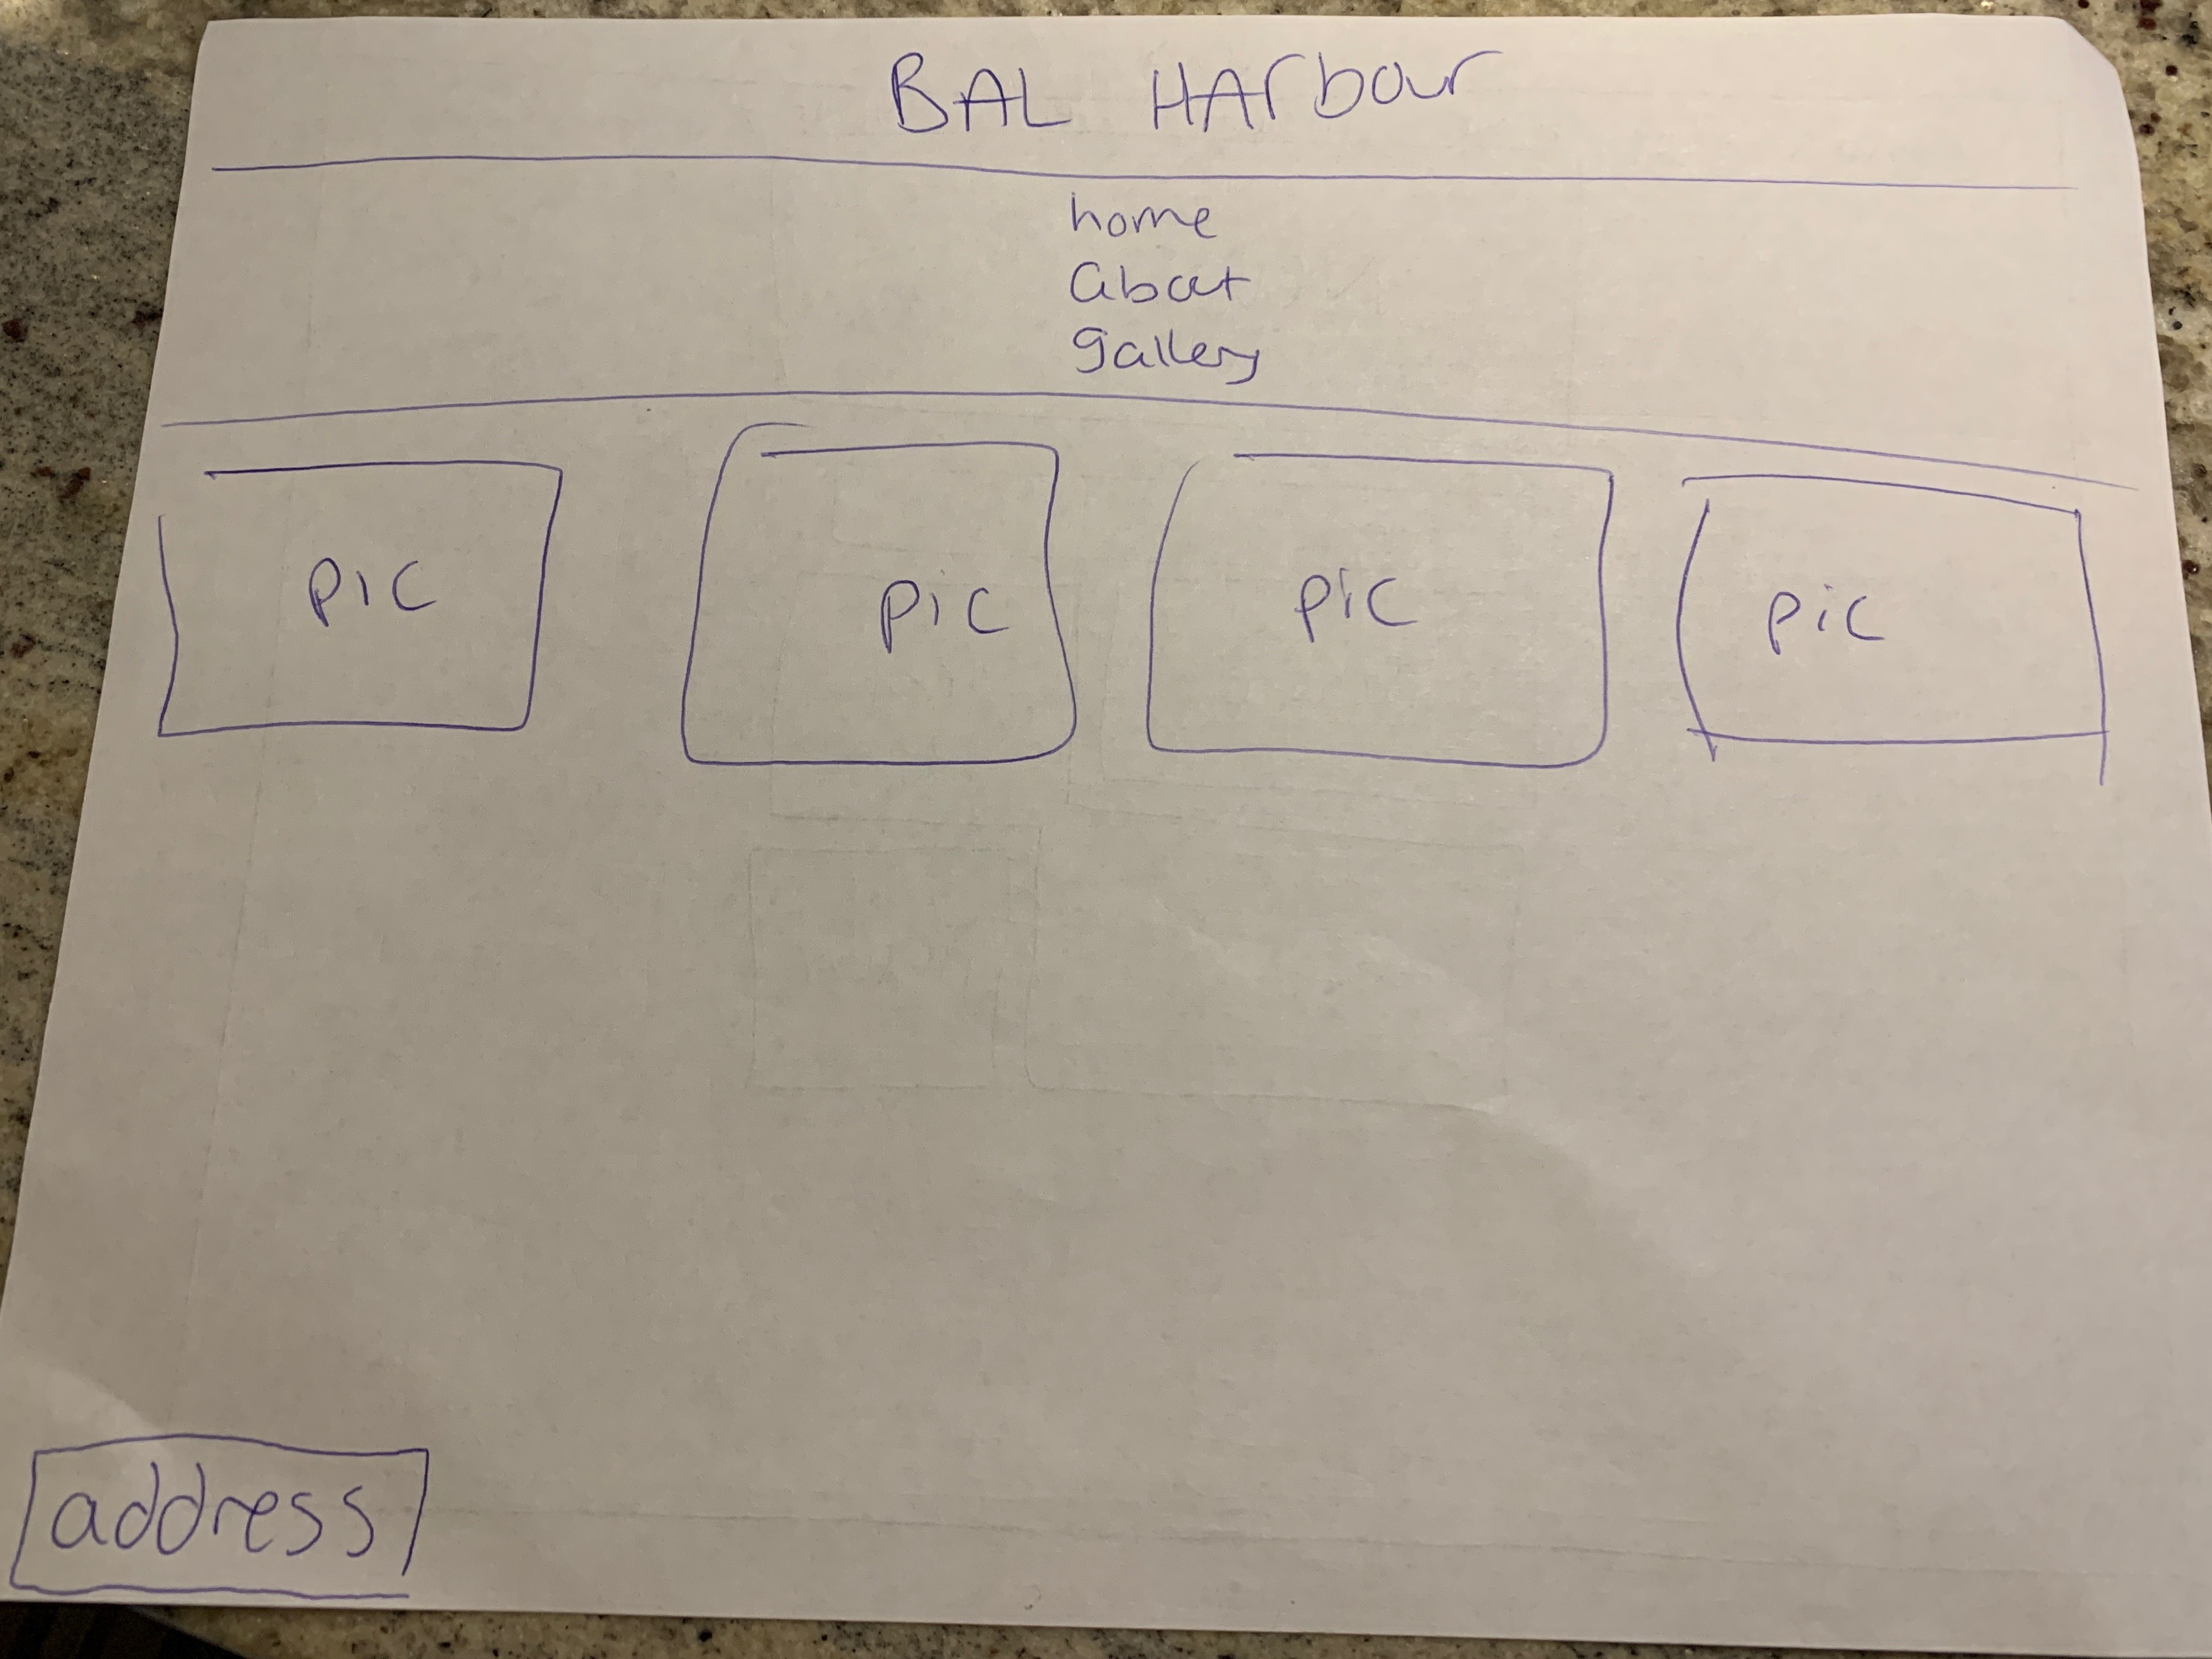 BAL HArbour
home
about
gallery
pic
pic
pic
pic
address